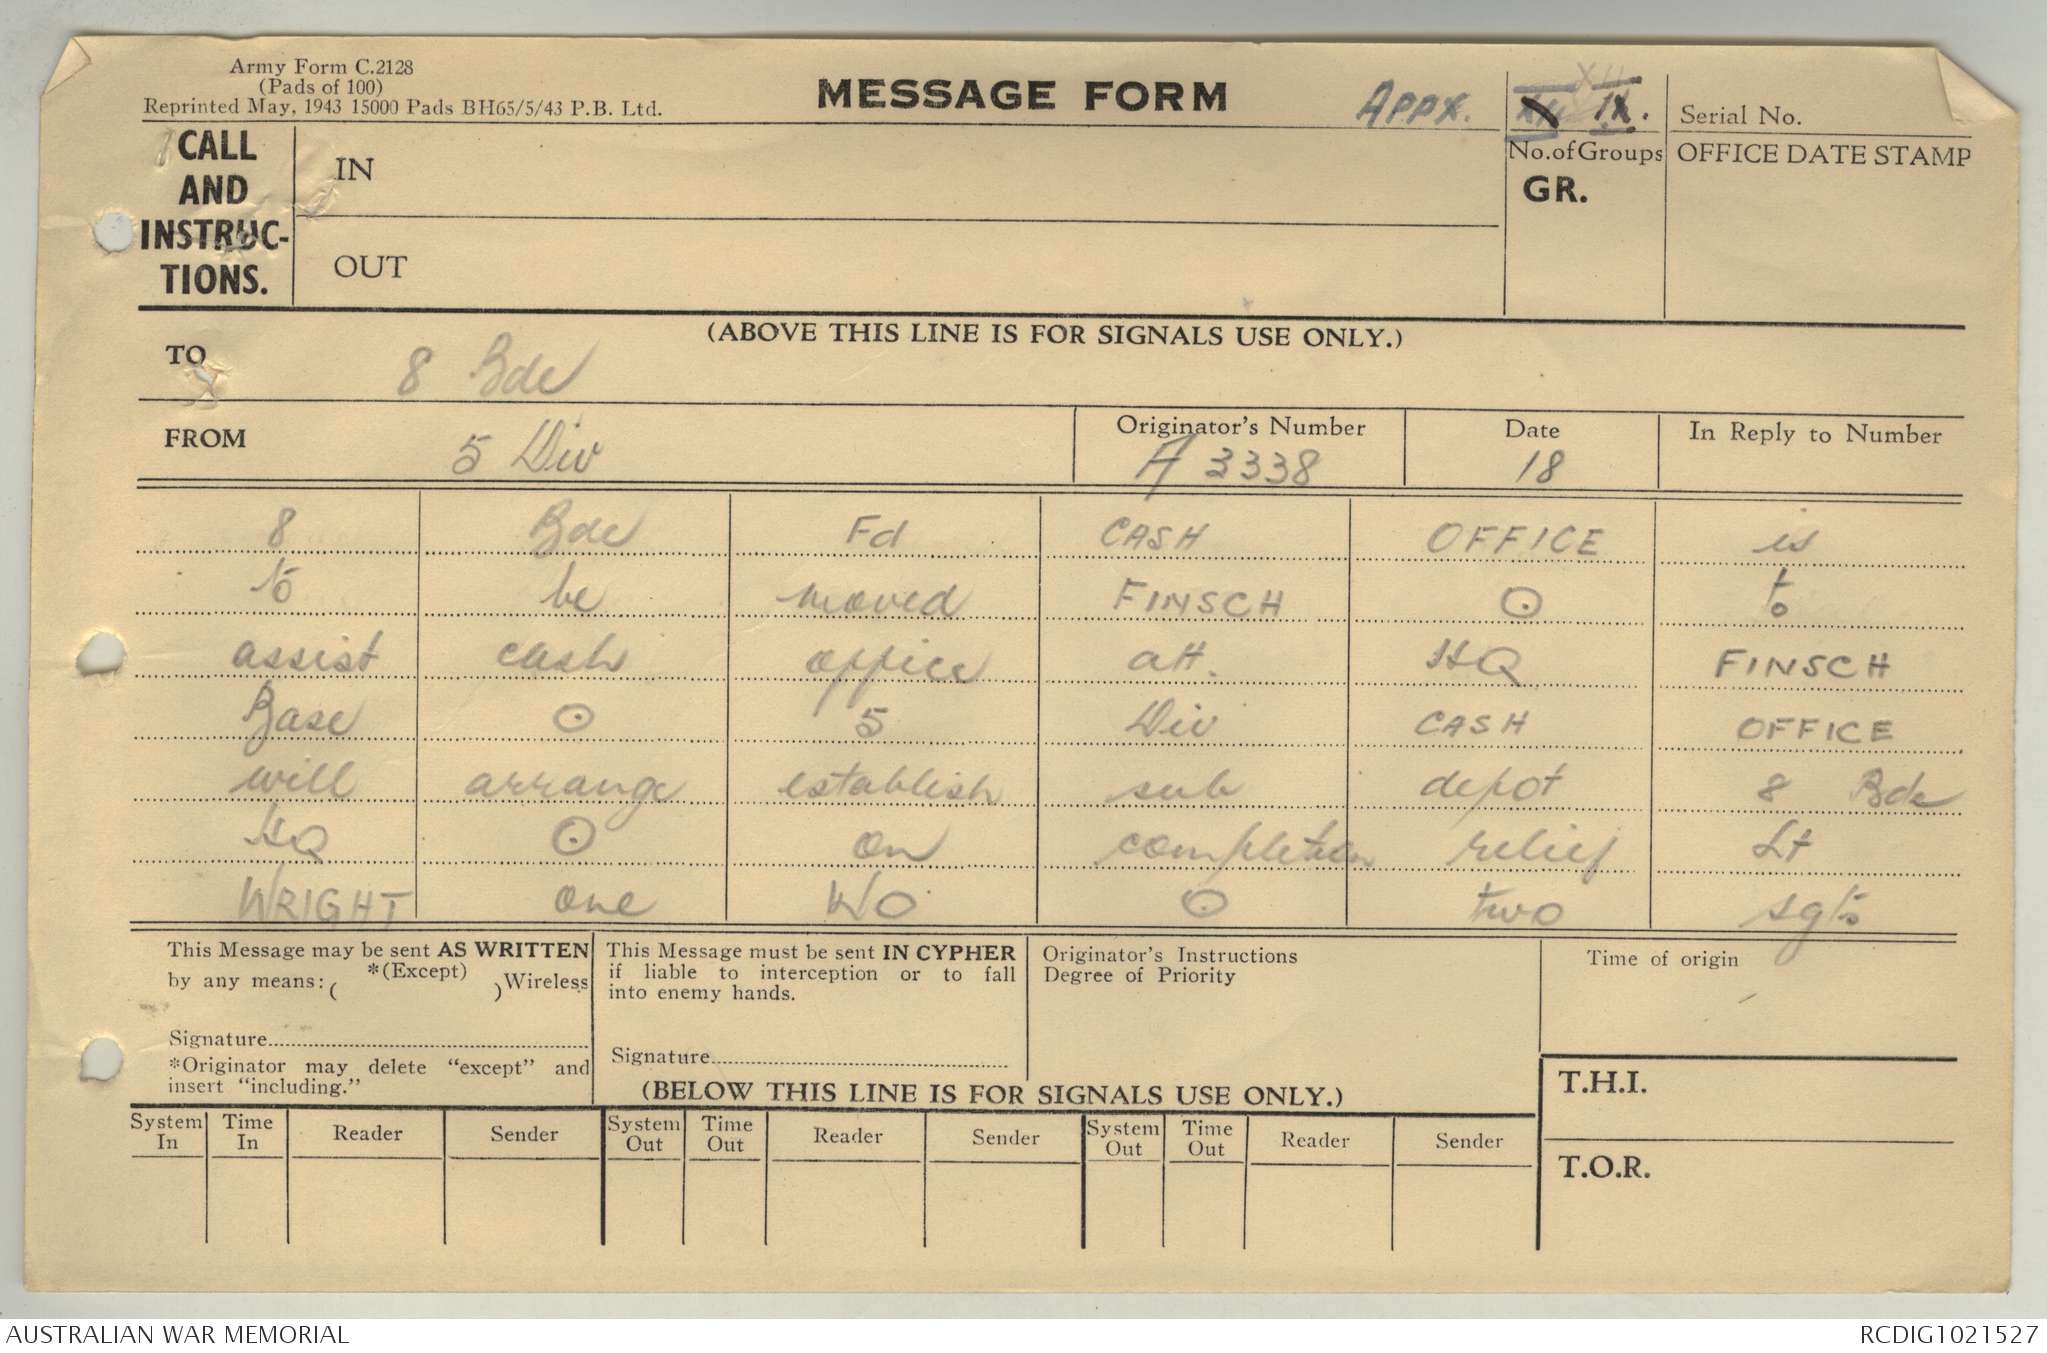 Army Form C.2128
(Pads of 100)
Reprinted May, 1943 15000 Pads BH65/5/43 P.B. Ltd.
MESSAGE FORM
APPX. IX.
Serial No.
CALL AND INSTRUC-TIONS.
IN
OUT
No. of Groups
GR.
OFFICE DATE STAMP
(ABOVE THIS LINE IS FOR SIGNALS USE ONLY.)
TO 8 Bde
FROM 5 Div
Originator's Number A 3338
Date 18
In Reply to Number
8 Bde Fd CASH OFFICE is
to be moved FINSCH ⊙ to
assist cash office att. HQ FINSCH
Base ⊙ 5 Div CASH OFFICE
will arrange establish sub depot 8 Bde
HQ ⊙ on completion relief Lt
WRIGHT one WO ⊙ two sgts
This Message may be sent AS WRITTEN
by any means: ( *(Except) ) Wireless
Signature
*Originator may delete "except" and
insert "including."
This Message must be sent IN CYPHER
if liable to interception or to fall
into enemy hands.
Signature
Originator's Instructions
Degree of Priority
Time of origin
(BELOW THIS LINE IS FOR SIGNALS USE ONLY.)
T.H.I.
T.O.R.
System In Time In Reader Sender System Out Time Out Reader Sender System Out Time Out Reader Sender
AUSTRALIAN WAR MEMORIAL
RCDIG1021527